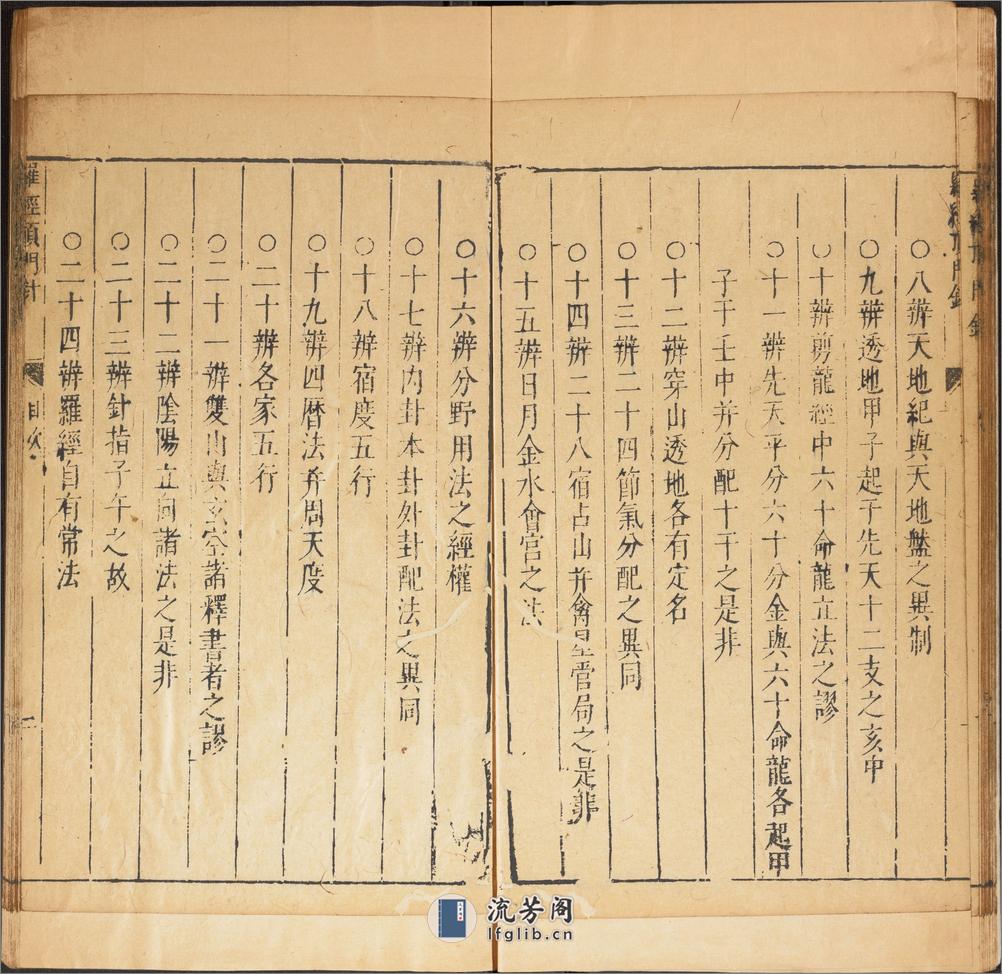 羅經頂門針
○八辨天地紀與天地盤之異制
○九辨透地甲子起于先天十二支之亥中
○十辨剪龍經中六十命龍立法之謬
○十一辨先天平分六十分金與六十命龍各起甲
子于壬中并分配十干之是非
○十二辨穿山透地各有定名
○十三辨二十四節氣分配之異同
○十四辨二十八宿占山并禽星管局之是非
○十五辨日月金水會宮之法
○十六辨分野用法之經權
○十七辨內卦本卦外卦配法之異同
○十八辨宿度五行
○十九辨四曆法并周天度
○二十辨各家五行
○二十一辨雙山與玄空諸釋書者之謬
○二十二辨陰陽立向諸法之是非
○二十三辨針指子午之故
○二十四辨羅經自有常法
羅經頂門針 目次 二
流芳阁
lfglib.cn